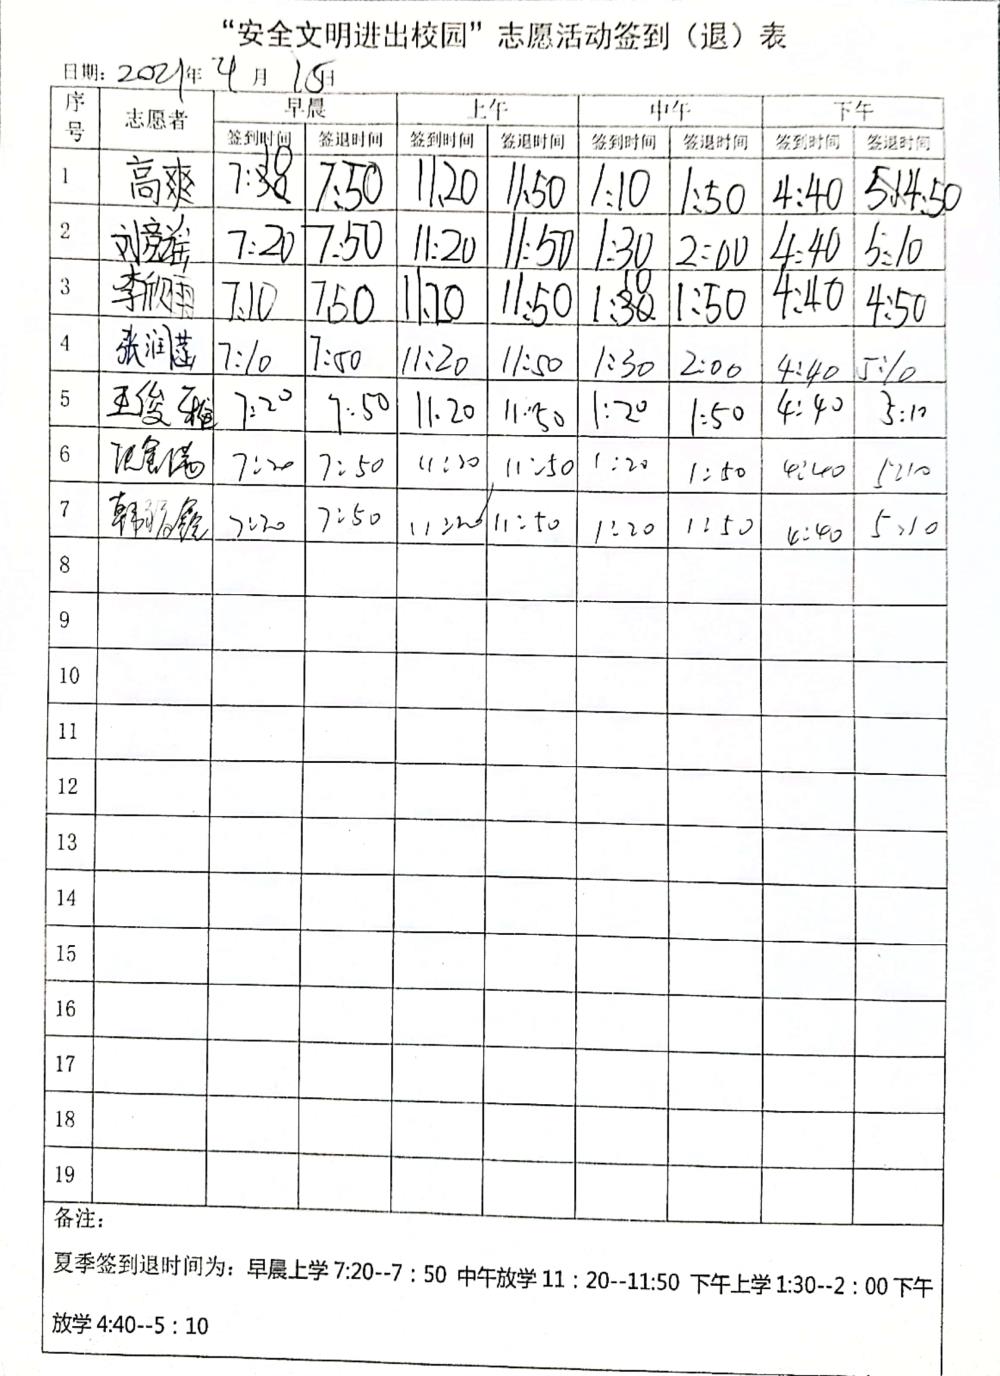 “安全文明进出校园”志愿活动签到（退）表
日期：2021年 4 月 15日
序号 志愿者 早晨 上午 中午 下午
签到时间 签退时间 签到时间 签退时间 签到时间 签退时间 签到时间 签退时间
1 高爽 7:10 7:50 11:20 11:50 1:10 1:50 4:40 4:50
2 刘彦谣 7:20 7:50 11:20 11:50 1:30 2:00 4:40 5:10
3 李欣雨 7:10 7:50 11:20 11:50 1:10 1:50 4:40 4:50
4 张润莲 7:10 7:50 11:20 11:50 1:30 2:00 4:40 5:10
5 王俊雅 7:20 7:50 11:20 11:50 1:20 1:50 4:40 5:10
6 7:20 7:50 11:20 11:50 1:20 1:50 4:40 5:10
7 韩 7:20 7:50 11:20 11:50 1:20 1:50 4:40 5:10
8
9
10
11
12
13
14
15
16
17
18
19
备注：
夏季签到退时间为：早晨上学 7:20--7：50 中午放学 11：20--11:50 下午上学 1:30--2：00 下午
放学 4:40--5：10